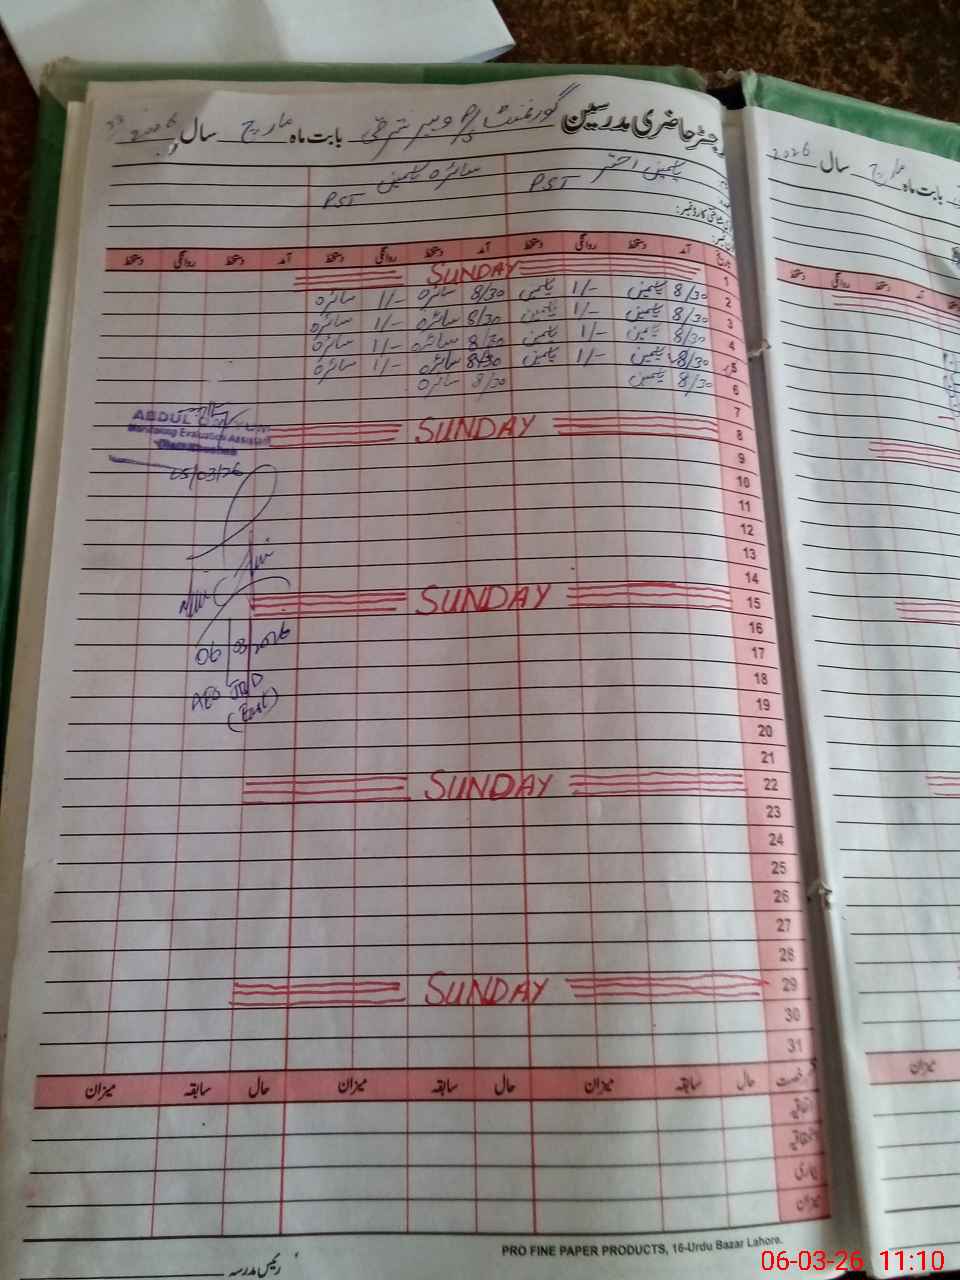 رجسٹر حاضری مدرسین گورنمنٹ P/S بابت ماہ مارچ سال 2026
یاسمین اختر PST سائرہ یاسمین PST
تاریخ آمد دستخط روانگی دستخط آمد دستخط روانگی دستخط آمد دستخط روانگی دستخط
1 SUNDAY
2 8/30 یاسمین 1/- یاسمین 8/30 سائرہ 1/- سائرہ
3 8/30 یاسمین 1/- یاسمین 8/30 سائرہ 1/- سائرہ
4 8/30 یاسمین 1/- یاسمین 8/30 سائرہ 1/- سائرہ
5 8/30 یاسمین 1/- یاسمین 8/30 سائرہ 1/- سائرہ
6 8/30 یاسمین 8/30 سائرہ
7
8 SUNDAY
9
10
11
12
13
14
15 SUNDAY
16
17
18
19
20
21
22 SUNDAY
23
24
25
26
27
28
29 SUNDAY
30
31
ABDUL
Monitoring Evaluation Assistant
05/03/26
06/03/2026
AEO
(East)
رخصت حال سابقہ میزان حال سابقہ میزان حال سابقہ میزان
اتفاقیہ
بیماری
میزان
رئیس مدرسہ
PRO FINE PAPER PRODUCTS, 16-Urdu Bazar Lahore.
بابت ماہ مارچ سال 2026
دستخط روانگی دستخط آمد
میزان
06-03-26 11:10